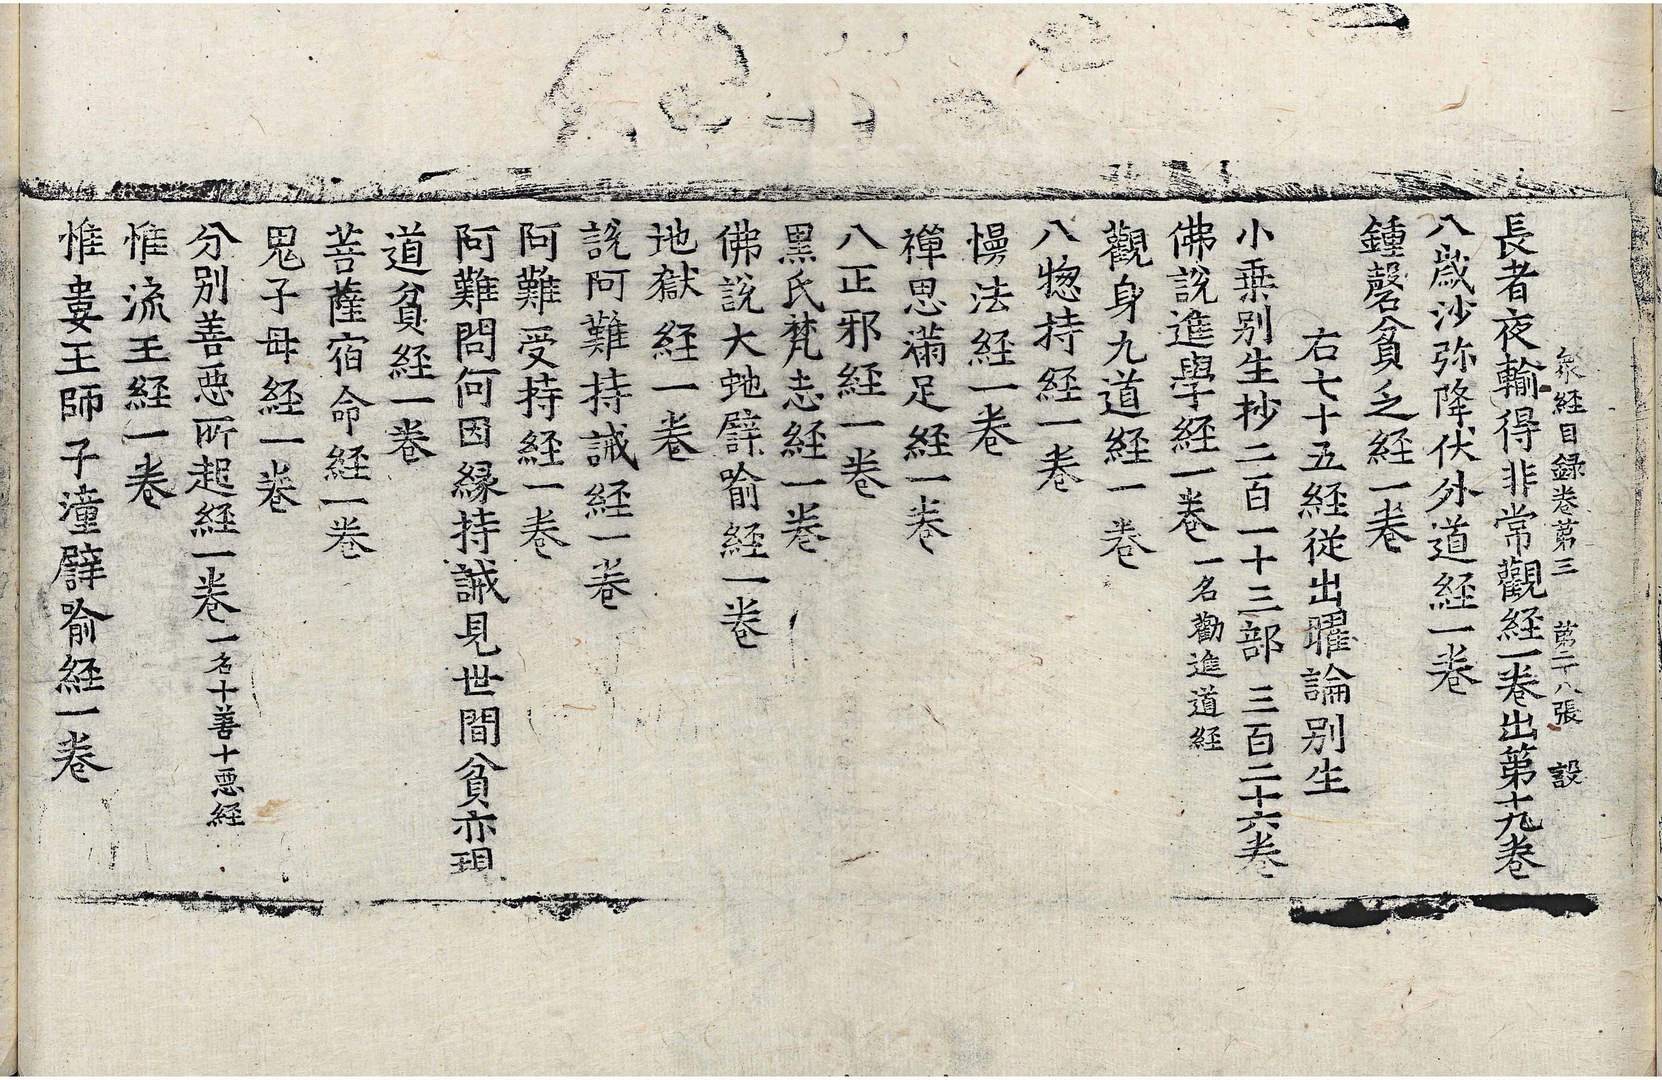 衆経目録卷苐三 苐二十八張 設
長者夜輸得非常觀経一卷出第十九卷
八歳沙弥降伏外道経一卷
鍾磬貧乏経一卷
右七十五経從出曜論别生
小乗别生抄二百一十三部 三百二十六卷
佛說進學経一卷 一名勸進道経
觀身九道経一卷
八惣持経一卷
慢法経一卷
禪思滿足経一卷
八正邪経一卷
黒氏梵志経一卷
佛說大虵譬喻経一卷
地獄経一卷
說阿難持誡経一卷
阿難受持経一卷
阿難問何因縁持誡見世間貧亦現
道貧経一卷
菩薩宿命経一卷
鬼子母経一卷
分别善惡所起経一卷 一名十善十惡経
惟流王経一卷
惟婁王師子湩譬喻経一卷